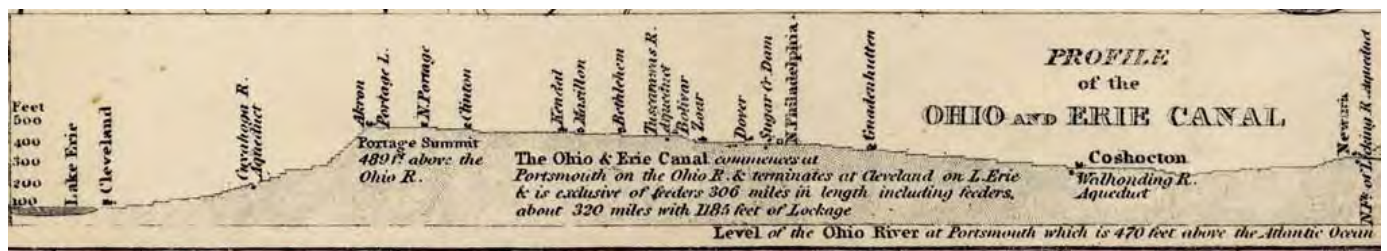 PROFILE
of the
OHIO AND ERIE CANAL
Feet
500
400
300
200
100
Lake Erie
Cleveland
Cuyahoga R.
Aqueduct
Akron
Portage L.
N. Portage
Clinton
Kendal
Masillon
Bethlehem
Tuscarawas R.
Aqueduct
Bolivar
Zoar
Dover
Sugar Cr Dam
N. Philadelphia
Gnadenhutten
Coshocton
Walhonding R.
Aqueduct
Newark
Licking R. Aqueduct
Portage Summit
489 ft above the
Ohio R.
The Ohio & Erie Canal commences at
Portsmouth on the Ohio R. & terminates at Cleveland on L. Erie
& is exclusive of feeders 306 miles in length including feeders,
about 320 miles with 1185 feet of Lockage
Level of the Ohio River at Portsmouth which is 470 feet above the Atlantic Ocean